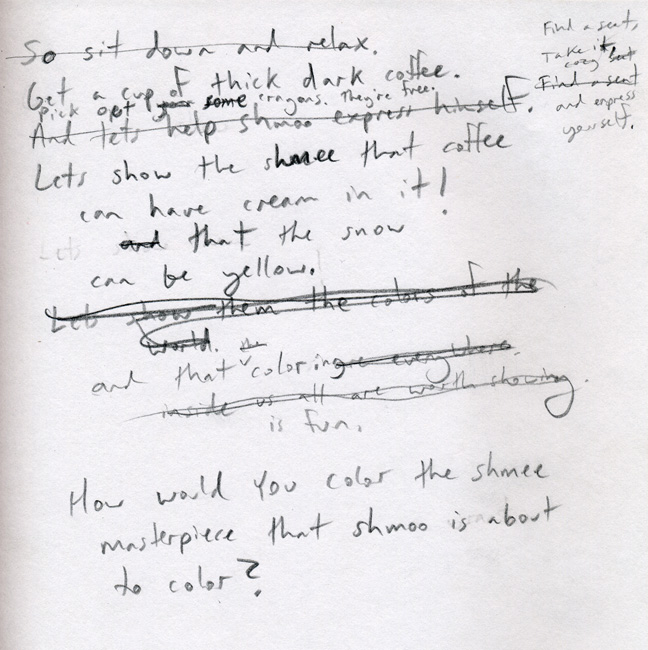 So sit down and relax.
Get a cup of thick dark coffee.
pick out your some crayons. They're free.
And lets help shmoo express himself.
Lets show the shmee that coffee
can have cream in it!
Lets and that the snow
can be yellow.
Lets show them the colors of the
world.
and that the colorings everywhere.
inside us all are worth showing.
is fun.
How would you color the shmee
masterpiece that shmoo is about
to color?
Find a seat,
Take it,
cozy
Find a seat
and express
yourself.